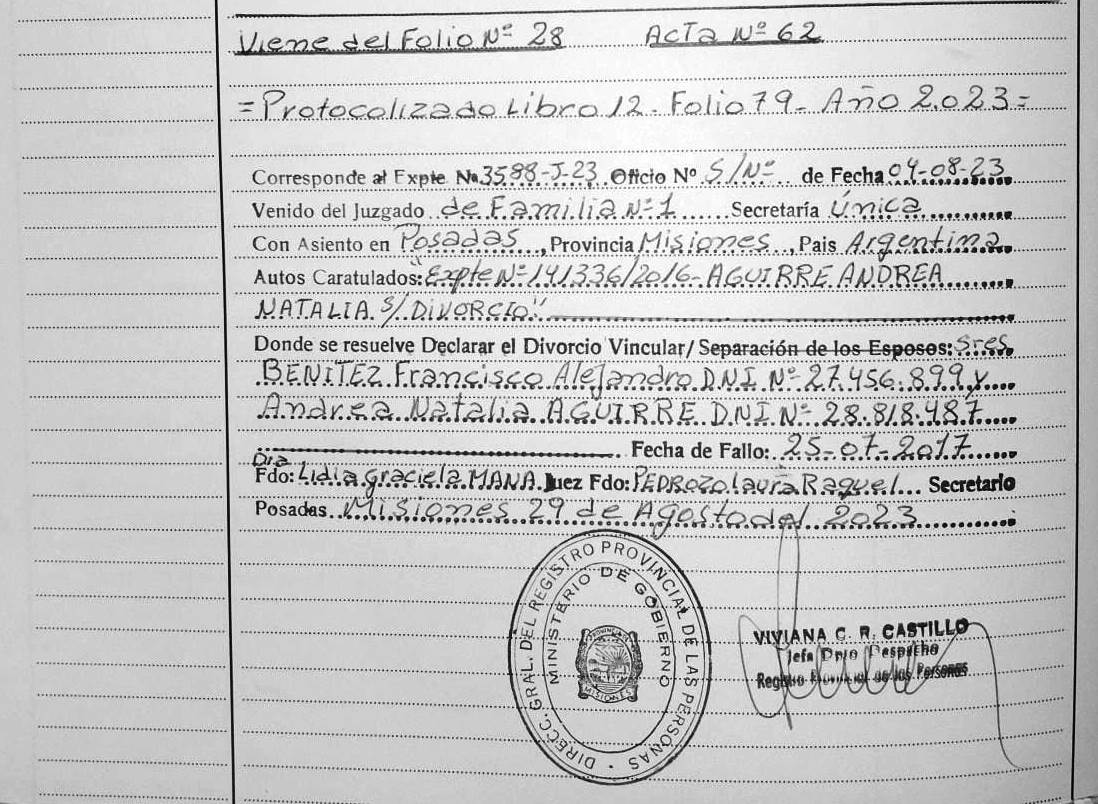 Viene del Folio Nº 28 Acta Nº 62
=Protocolizado Libro 12 - Folio 79 - Año 2.023=
Corresponde al Expte Nº 3588-J-23 Oficio Nº S/Nº de Fecha 04-08-23
Venido del Juzgado de Familia Nº 1 Secretaría Única
Con Asiento en Posadas, Provincia Misiones, Pais Argentina
Autos Caratulados: "Expte Nº 141336/2016 - AGUIRRE ANDREA
NATALIA S/ DIVORCIO"
Donde se resuelve Declarar el Divorcio Vincular/ Separación de los Esposos: Sres
BENITEZ Francisco Alejandro D.N.I. Nº 27.456.899 y
Andrea Natalia AGUIRRE D.N.I. Nº 28.818.487
Fecha de Fallo: 25-07-2017
Dra
Fdo: Lidia Graciela MANA Juez Fdo: PEDROZO Laura Raquel Secretario
Posadas Misiones 29 de Agosto del 2023
DIRECC. GRAL. DEL REGISTRO PROVINCIAL DE LAS PERSONAS
MINISTERIO DE GOBIERNO
PROVINCIA
MISIONES
VIVIANA C. R. CASTILLO
Jefa Dpto Despacho
Registro Provincial de las Personas